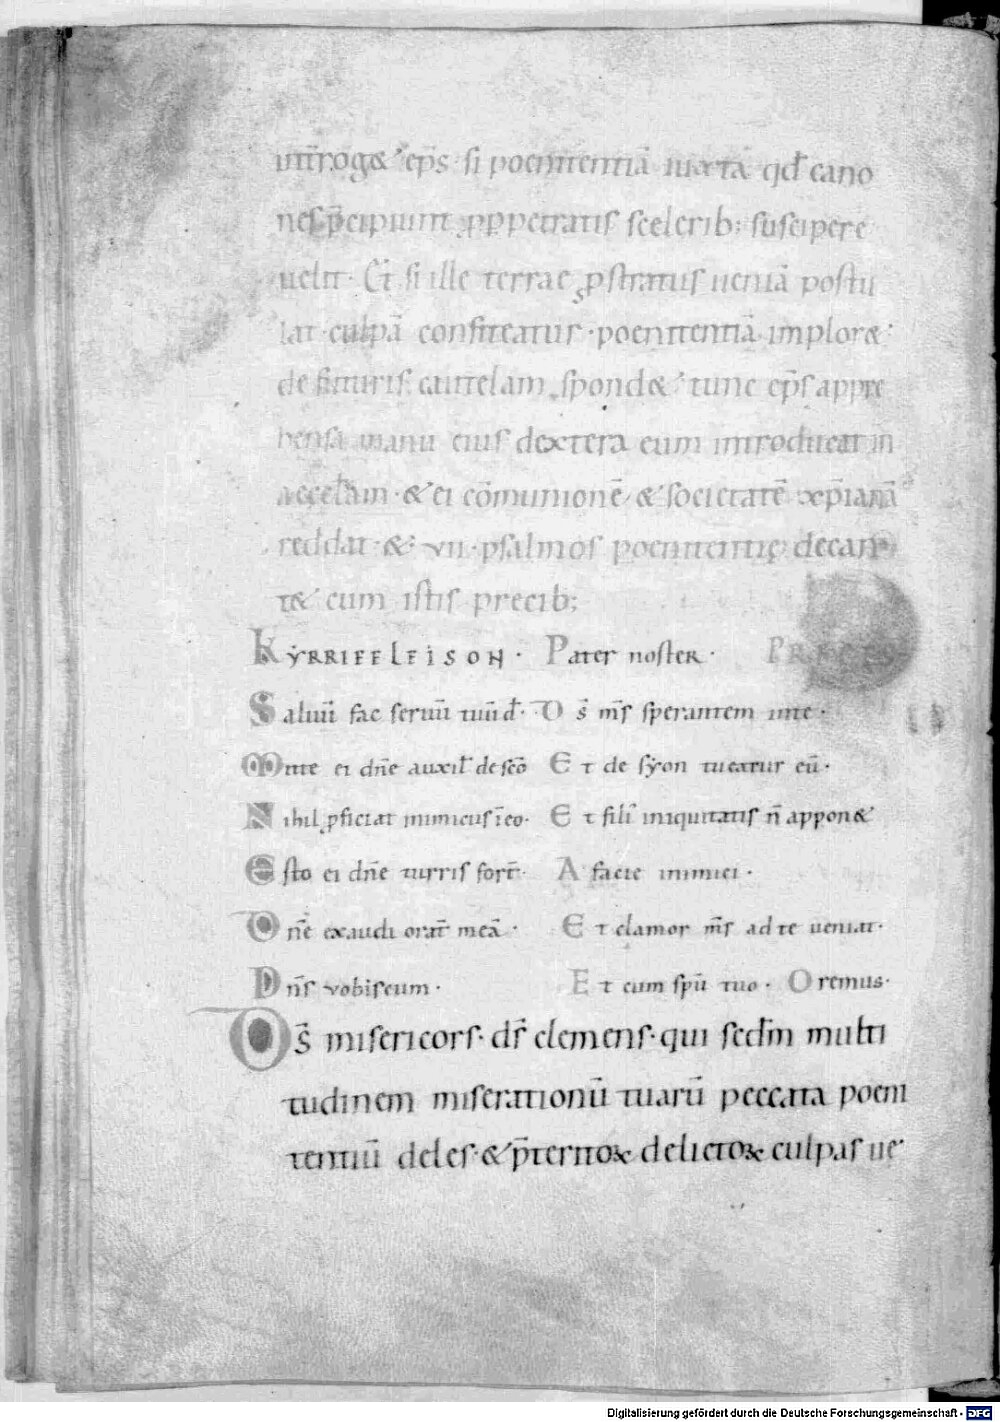 int̄rog& ep̄s si poenitentiā iuxta qđ cano
nes p̄cipiunt p̱ p̱petratis scelerib; suscipere
uelit · Et̄ si ille terrae p̱stratus ueniā postu
lat · culpā confiteatur · poenitentiā implor& ·
de futuris cautelam spond& · tunc ep̄s appre
hensa manu eius dextera eum introducat in
aecclam · & ei cōmunionē & societatē xp̄ianā
reddat · & · vii · psalmos poenitentię decan
t& cum istis precib;
KẎRRIEELEISON · Pater noster · PRECES
Saluū fac seruū tuū d̄ · D s̄ m̄s sperantem in te ·
Mitte ei dn̄e auxil̄ de sc̄o Et de syon tuearur eū ·
Nihil p̱ficiat inimicus ī eo · Et filī iniquitatis n̄ appon&
Esto ei dn̄e turris fort̄ · A facie inimici ·
Dn̄e exaudi orat̄ meā · Et clamor m̄s ad te ueniat ·
Dn̄s vobiscum · Et cum sp̄u tuo · Oremus ·
Ds̄ misericors · ds̄ clemens · qui secd̄m multi
tudinem miserationū tuarū peccata poeni
tentiū deles · & p̄teritoꝝ delictoꝝ culpas ue
Digitalisierung gefördert durch die Deutsche Forschungsgemeinschaft - DFG